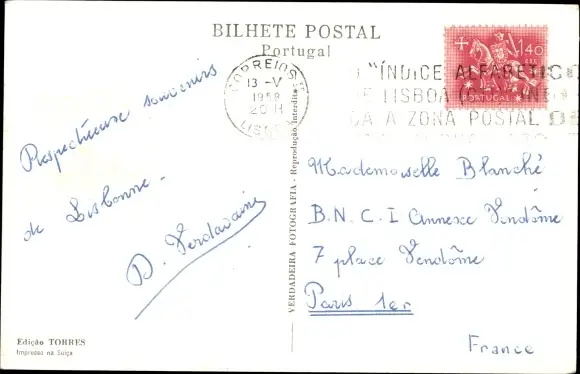 BILHETE POSTAL
Portugal
CORREIOS
13 - V
1958
20 H
LISBOA
"ÍNDICE ALFABÉTICO
DE LISBOA
A ZONA POSTAL
1$40
PORTUGAL
Respectueux souvenirs
de Lisbonne -
D. Verdavaine
VERDADEIRA FOTOGRAFIA - Reprodução Interdita -
Mademoiselle Blanché
B.N.C.I Annexe Vendôme
7 place Vendôme
Paris 1er
France
Edição TORRES
Impresso na Suíça